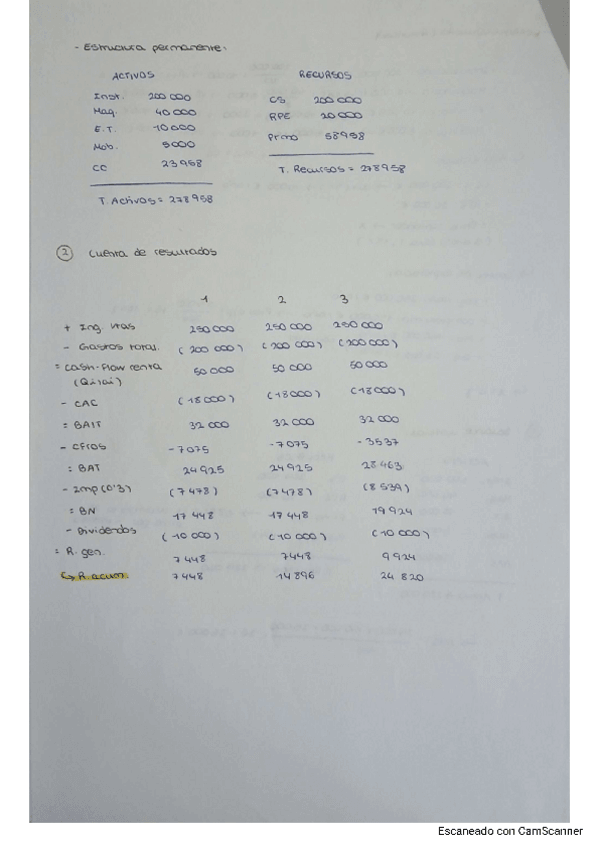 - Estructura permanente:
ACTIVOS RECURSOS
Inst. 200 000 CS 200 000
Maq. 40 000 RPE 20 000
E.T. 10 000 Prmo 58958
Mob. 5000
CC 23958 T. Recursos = 278958
T. Activos = 278958
2 Cuenta de resultados
1 2 3
+ Ing. Vtas 250 000 250 000 250 000
- Gastos total. (200 000) (200 000) (200 000)
= Cash-Flow renta 50 000 50 000 50 000
(Qi!ai)
- CAC (18000) (18000) (18000)
= BAIT 32 000 32 000 32 000
- CFros - 7075 - 7075 - 3537
= BAT 24925 24925 28463
- Imp (0'3) (7478) (7478) (8539)
= BN 17448 17448 19924
- Dividendos (10 000) (10 000) (10 000)
= R. gen. 7448 7448 9924
↳ R. acum. 7448 14896 24 820
Escaneado con CamScanner